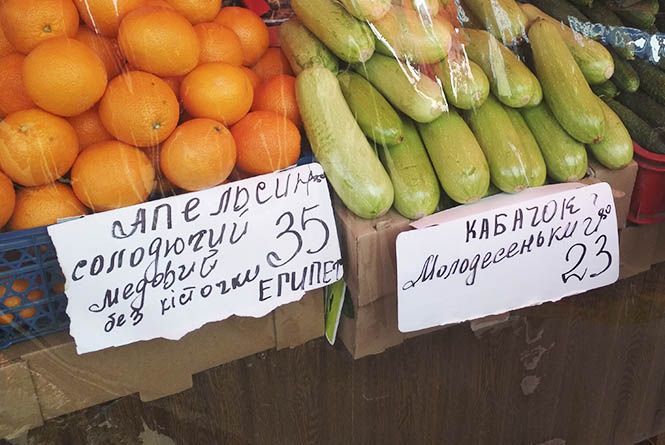 АПЕЛЬСИН
СОЛОДЮЧИЙ
МЕДОВИЙ
без кісточки
35
ЕГИПЕТ
КАБАЧОК
Молодесеньки
23